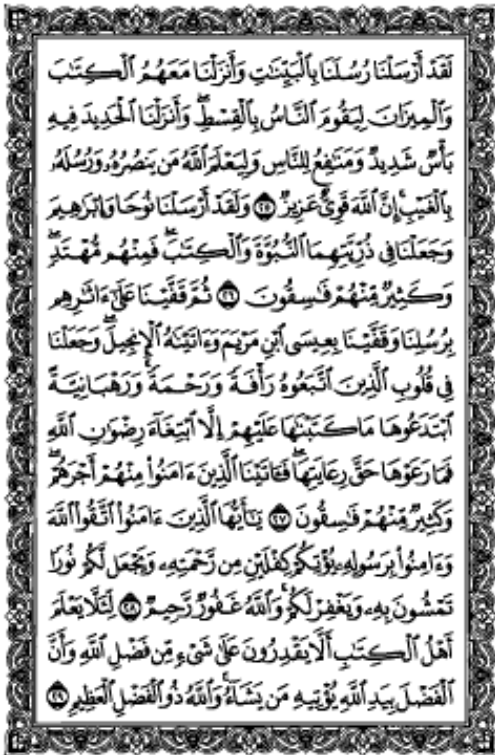 لَقَدْ أَرْسَلْنَا رُسُلَنَا بِٱلْبَيِّنَٰتِ وَأَنزَلْنَا مَعَهُمُ ٱلْكِتَٰبَ
وَٱلْمِيزَانَ لِيَقُومَ ٱلنَّاسُ بِٱلْقِسْطِ ۖ وَأَنزَلْنَا ٱلْحَدِيدَ فِيهِ
بَأْسٌ شَدِيدٌ وَمَنَٰفِعُ لِلنَّاسِ وَلِيَعْلَمَ ٱللَّهُ مَن يَنصُرُهُۥ وَرُسُلَهُۥ
بِٱلْغَيْبِ ۚ إِنَّ ٱللَّهَ قَوِىٌّ عَزِيزٌ ٢٥ وَلَقَدْ أَرْسَلْنَا نُوحًا وَإِبْرَٰهِيمَ
وَجَعَلْنَا فِى ذُرِّيَّتِهِمَا ٱلنُّبُوَّةَ وَٱلْكِتَٰبَ ۖ فَمِنْهُم مُّهْتَدٍ ۖ
وَكَثِيرٌ مِّنْهُمْ فَٰسِقُونَ ٢٦ ثُمَّ قَفَّيْنَا عَلَىٰٓ ءَاثَٰرِهِم
بِرُسُلِنَا وَقَفَّيْنَا بِعِيسَى ٱبْنِ مَرْيَمَ وَءَاتَيْنَٰهُ ٱلْإِنجِيلَ ۖ وَجَعَلْنَا
فِى قُلُوبِ ٱلَّذِينَ ٱتَّبَعُوهُ رَأْفَةً وَرَحْمَةً ۚ وَرَهْبَانِيَّةً
ٱبْتَدَعُوهَا مَا كَتَبْنَٰهَا عَلَيْهِمْ إِلَّا ٱبْتِغَآءَ رِضْوَٰنِ ٱللَّهِ
فَمَا رَعَوْهَا حَقَّ رِعَايَتِهَا ۖ فَـَٔاتَيْنَا ٱلَّذِينَ ءَامَنُوا۟ مِنْهُمْ أَجْرَهُمْ ۖ
وَكَثِيرٌ مِّنْهُمْ فَٰسِقُونَ ٢٧ يَٰٓأَيُّهَا ٱلَّذِينَ ءَامَنُوا۟ ٱتَّقُوا۟ ٱللَّهَ
وَءَامِنُوا۟ بِرَسُولِهِۦ يُؤْتِكُمْ كِفْلَيْنِ مِن رَّحْمَتِهِۦ وَيَجْعَل لَّكُمْ نُورًا
تَمْشُونَ بِهِۦ وَيَغْفِرْ لَكُمْ ۚ وَٱللَّهُ غَفُورٌ رَّحِيمٌ ٢٨ لِّئَلَّا يَعْلَمَ
أَهْلُ ٱلْكِتَٰبِ أَلَّا يَقْدِرُونَ عَلَىٰ شَىْءٍ مِّن فَضْلِ ٱللَّهِ ۙ وَأَنَّ
ٱلْفَضْلَ بِيَدِ ٱللَّهِ يُؤْتِيهِ مَن يَشَآءُ ۚ وَٱللَّهُ ذُو ٱلْفَضْلِ ٱلْعَظِيمِ ٢٩